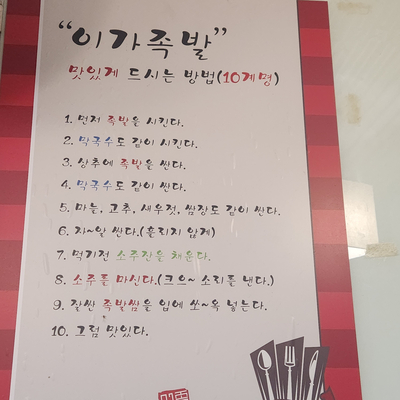 “이가족발”
맛있게 드시는 방법(10계명)
1. 먼저 족발을 시킨다.
2. 막국수도 같이 시킨다.
3. 상추에 족발을 싼다.
4. 막국수도 같이 싼다.
5. 마늘, 고추, 새우젓, 쌈장도 같이 싼다.
6. 자~알 싼다.(흘리지 않게)
7. 먹기전 소주잔을 채운다.
8. 소주를 마신다.(크으~ 소리를 낸다.)
9. 잘싼 족발쌈을 입에 쏘~옥 넣는다.
10. 그럼 맛있다.